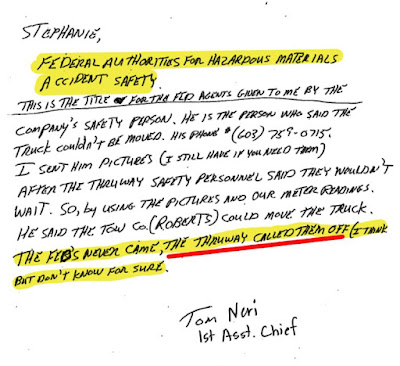 STEPHANIE,
FEDERAL AUTHORITIES FOR HAZARDOUS MATERIALS
ACCIDENT SAFETY.
THIS IS THE TITLE FOR THE FED AGENTS GIVEN TO ME BY THE
COMPANY'S SAFETY PERSON. HE IS THE PERSON WHO SAID THE
TRUCK COULDN'T BE MOVED. HIS PHONE # (603) 759-0715.
I SENT HIM PICTURES (I STILL HAVE IF YOU NEED THEM)
AFTER THE THRUWAY SAFETY PERSONNEL SAID THEY WOULDN'T
WAIT. SO, BY USING THE PICTURES AND OUR METER READINGS.
HE SAID THE TOW CO. (ROBERTS) COULD MOVE THE TRUCK.
THE FED'S NEVER CAME, THE THRUWAY CALLED THEM OFF (I THINK
BUT DON'T KNOW FOR SURE.
Tom Neri
1st Asst. Chief